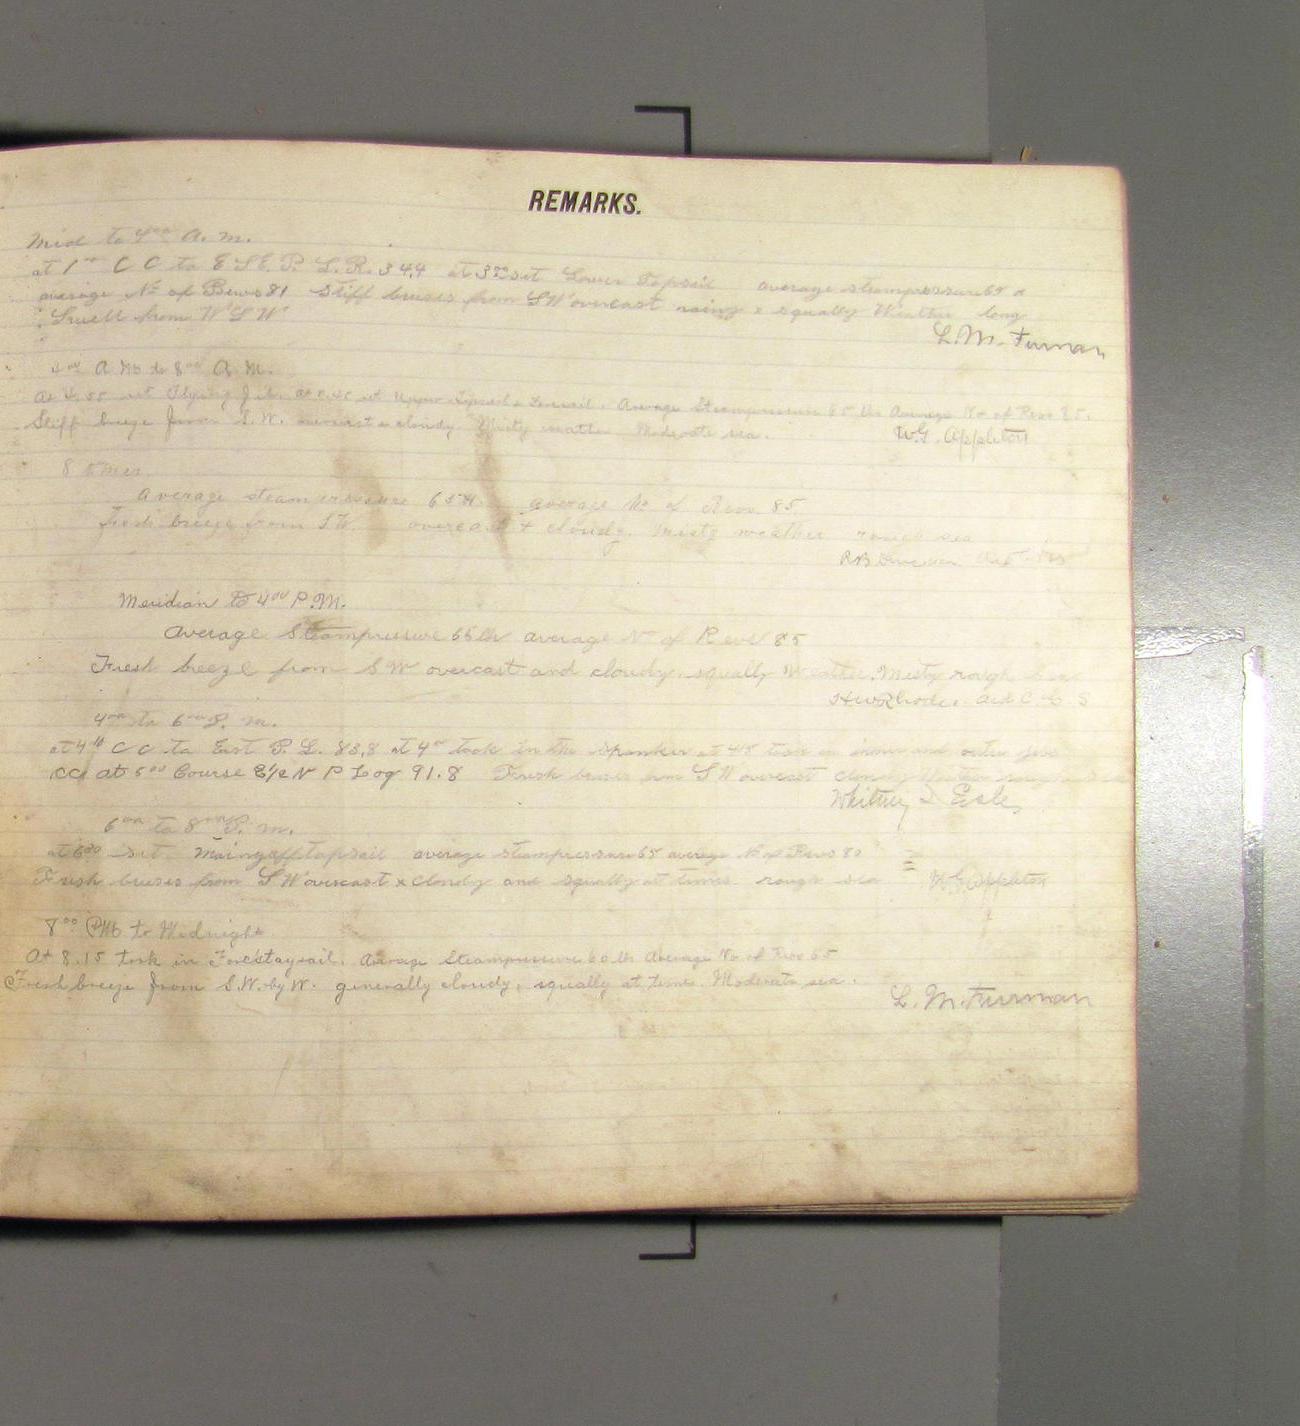 REMARKS.
Mid to 4 00 A. M.
at 1 00 C C to E S E. P. L. R. 344 at 3 00 set Lower Topsail average steampressure 65 #
average No of Revs 81 Stiff breeses from S W overcast rainy & squally Weather long
Swell from W S W
L. M. Furman
4 00 A M to 8 00 A. M.
At 4.55 set Flying Jib. At 5.45 set Upper Topsail & Foresail. Average Steampressure 65 lbs Average No of Revs 85.
Stiff breeze from S.W. overcast & cloudy. Misty weather Moderate sea.
W.G. Appleton
8 to Mer
Average steam pressure 65 #. average No of Revs. 85
fresh breeze from S W. overcast & cloudy. misty weather rough sea
Meridian to 4 00 P.M.
Average Steampressure 65 lbs average No of Revs 85
Fresh breeze from S W overcast and cloudy, squally Weather, Misty rough Sea
H W Rhodes
4 00 to 6 00 P. m.
at 4 C C to East P. L. 83.8 at 4 took in the spanker at 45 took in inner and outer jibs
CC at 5 00 Course E 1/2 N P Log 91.8 Fresh breeses from S W overcast cloudy Weather rough sea
Whitney I Eisler
6 00 to 8 00 P. m.
at 6 30 set Maingafftopsail average steampressure 65 average No of Revs 80
Fresh breeses from S W overcast & cloudy and squally at times rough sea
W G Appleton
8 00 PM to Midnight
At 8.15 took in Forestaysail. Average Steampressure 60 lbs Average No of Revs 65
Fresh breeze from S.W. by W. generally cloudy, squally at times. Moderate sea.
L. M. Furman